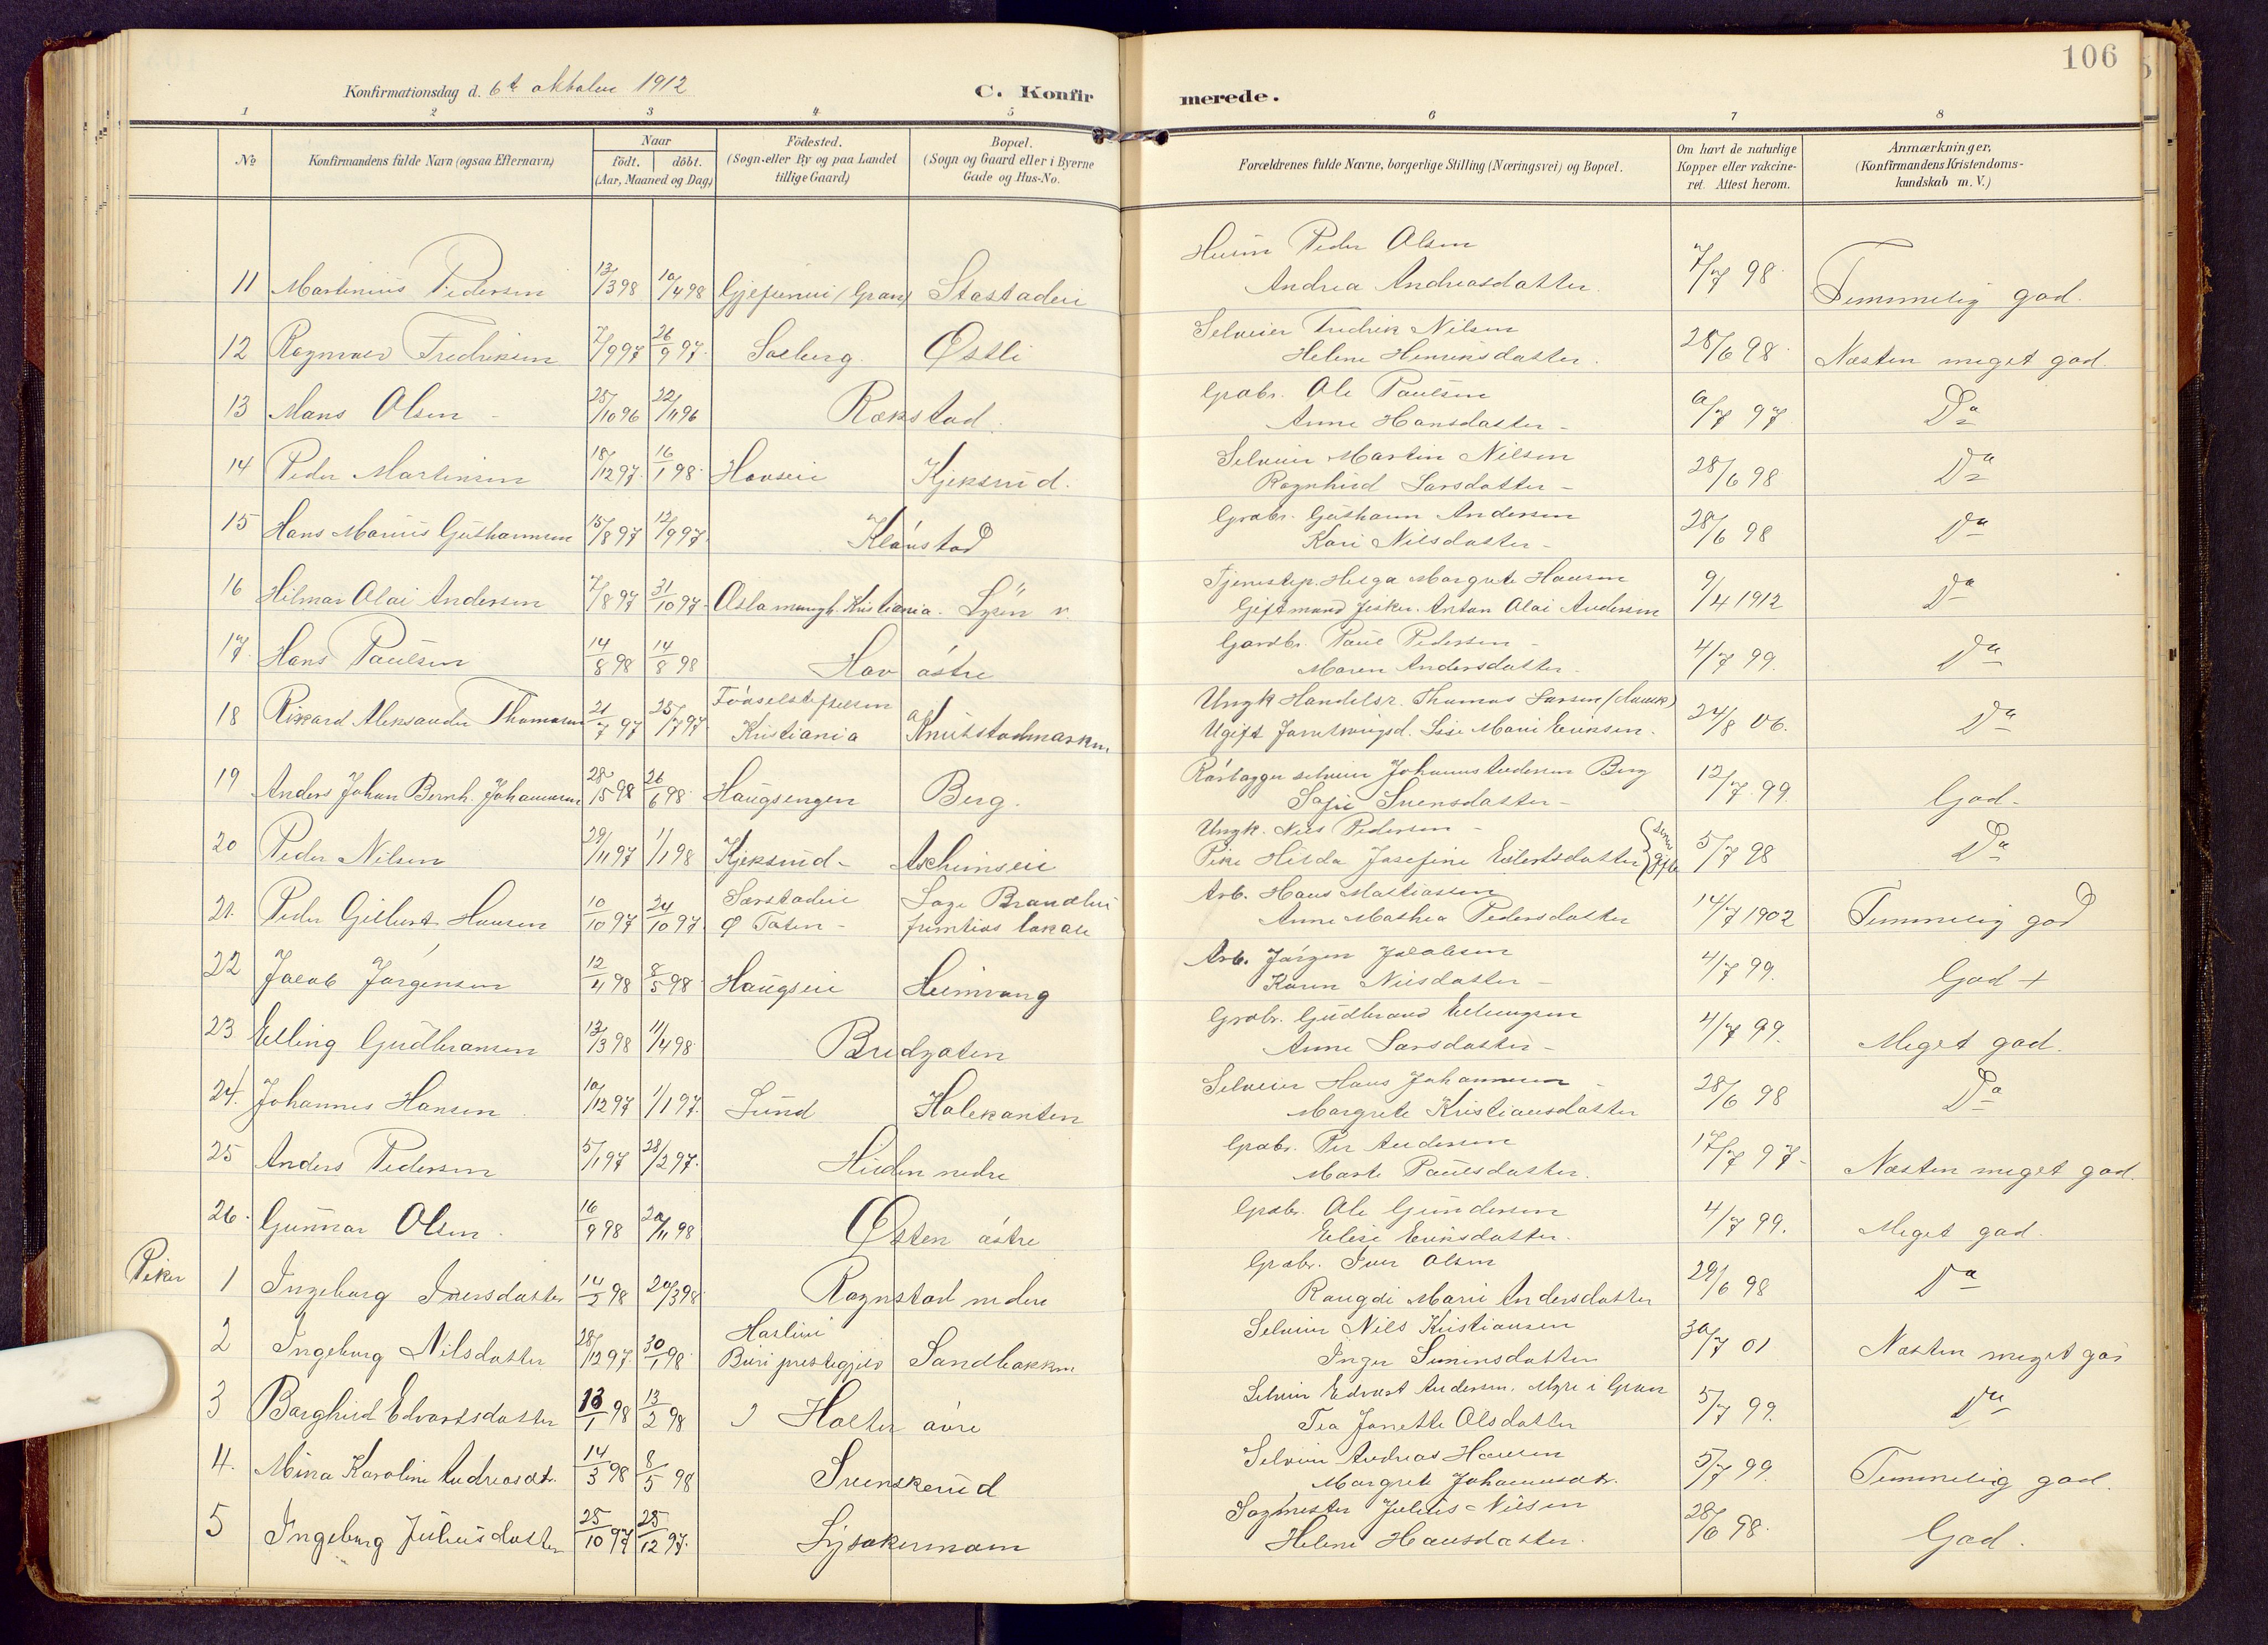 106
Konfirmationsdag d. 6te oktober 1912
C. Konfirmerede.
1 2 3 4 5 6 7 8
No
Konfirmandens fulde Navn (ogsaa Efternavn)
Naar
födt. döbt.
(Aar, Maaned og Dag)
Födested.
(Sogn eller By og paa Landet
tillige Gaard)
Bopæl.
(Sogn og Gaard eller i Byerne
Gade og Hus-No.
Forældrenes fulde Navne, borgerlige Stilling (Næringsvei) og Bopæl.
Om havt de naturlige
Kopper eller vakcine-
ret. Attest herom.
Anmærkninger,
(Konfirmandens Kristendoms-
kundskab m. V.)
Husm Peder Olsen
11 Martinius Pedersen 13/3 98 10/4 98 (Gran) Stastadeie Andrea Andreasdatter. 7/7 98 Temmelig god.
Selveier Fredrik Nilsen
12 Ragnvald Fredriksen 7/9 97 26/9 97 Solberg Østli Helene Henriksdatter. 28/6 98 Næsten meget god.
Grdbr. Ole Paulsen
13 Hans Olsen 25/10 96 22/11 96 Rækstad Anne Hansdatter 97 Do
Selveier Martin Nilsen
14 Peder Martinsen 18/12 97 16/1 98 Hovseie Kjeksrud. Ragnhild Larsdatter 28/6 98 Do
Grdbr. Guthorm Andersen
15 Hans Marius Guthormsen 15/8 97 12/9 97 Klónstad Kari Nilsdatter 28/6 98 Do
Tjenestep. Helga Margrete Hansen
16 Hilmar Olai Andersen 7/8 97 31/10 97 Oslo menigh. Kristiania. Lysen v. Gift mand fisker. Anton Olai Andersen 9/4 1912 Do
Gaardbr. Paul Pedersen
17 Hans Paulsen 14/8 98 14/8 98 Hov óstre Maren Andersdatter 4/7 99. Do
Fódselsstiftelsen Ungk Handelsr. Thomas Larsen
18 Rikard Aleksander Thomasen 21/7 97 25/7 97 Kristiania Knutstadmarken Ugift Lise Marie Eriksen. 24/8 06. Do
selveier Johannes Andersen Berg
19 Anders Johan Bernh. Johannesen 28/5 98 26/6 98 Haugsengen Berg. Sofie Svensdatter 12/7 99. God
Ungk. Nils Pedersen
20 Peder Nilsen 29/11 97 1/1 98 Kjeksrud Askimseie Pike Hilda Josefine Eilertsdatter 5/7 98 Do
Sørstadeie Arb. Hans Mathiassen
21. Peder Gilbert Hansen 10/10 97 24/10 97 Ø Toten lokale Anne Mathea Pedersdatter 14/7 1902 Temmelig god
Arb. Jórgen Jacobsen
22 Jacob Jórgensen 12/4 98 8/5 98 Haugseie Heimvang Karen Nilsdatter 4/7 99. God +
Grdbr. Gudbrand Ellingsen
23 Elling Gudbransen 13/3 98 11/4 98 Bredgaten Anne Larsdatter 4/7 99. Meget god.
Selveier Hans Johannesen
24. Johannes Hansen 10/12 97 1/1 97. Lund Holekanten Margrete Kristiansdatter 28/6 98 Do
Grdbr. Per Andersen
25 Anders Pedersen 5/1 97 28/2 97. Hilden nedre Marte Paulsdatter. 17/7 97 Næsten meget god.
Grdbr. Ole Gundersen
26. Gunnar Olsen. 16/9 98 20/11 98 Østen óstre Elise Eriksdatter. 4/7 99. Meget god.
Piker Grdbr. Iver Olsen
1 Ingeborg Iversdatter 14/2 98 20/3 98 Rognstad nedre Rangdi Marie Andersdatter 29/6 98 Do
Selveier Nils Kristiansen
2 Ingeborg Nilsdatter 28/12 97 30/1 98 Biri prestegjeld Sandbakken Inger Simensdatter 30/7 01 Næsten meget god
Selveier Edvart Andersen. Myre i Gran
3 Borghild Edvartsdatter 13/1 98 13/2 98 Holter óvre Tea Janette Olsdatter 5/7 99. Do
Selveier Andreas Hansen
4. Mina Karoline Andreasdt. 14/3 98 8/5 98 Svenskerud Margrete Johannesdtr. 5/7 99. Temmelig god.
Sagmester Julius Nilsen
5 Ingeborg Juliusdatter 25/10 97 25/12 97. Lysakermoen Helene Hansdatter. 28/6 98. God.